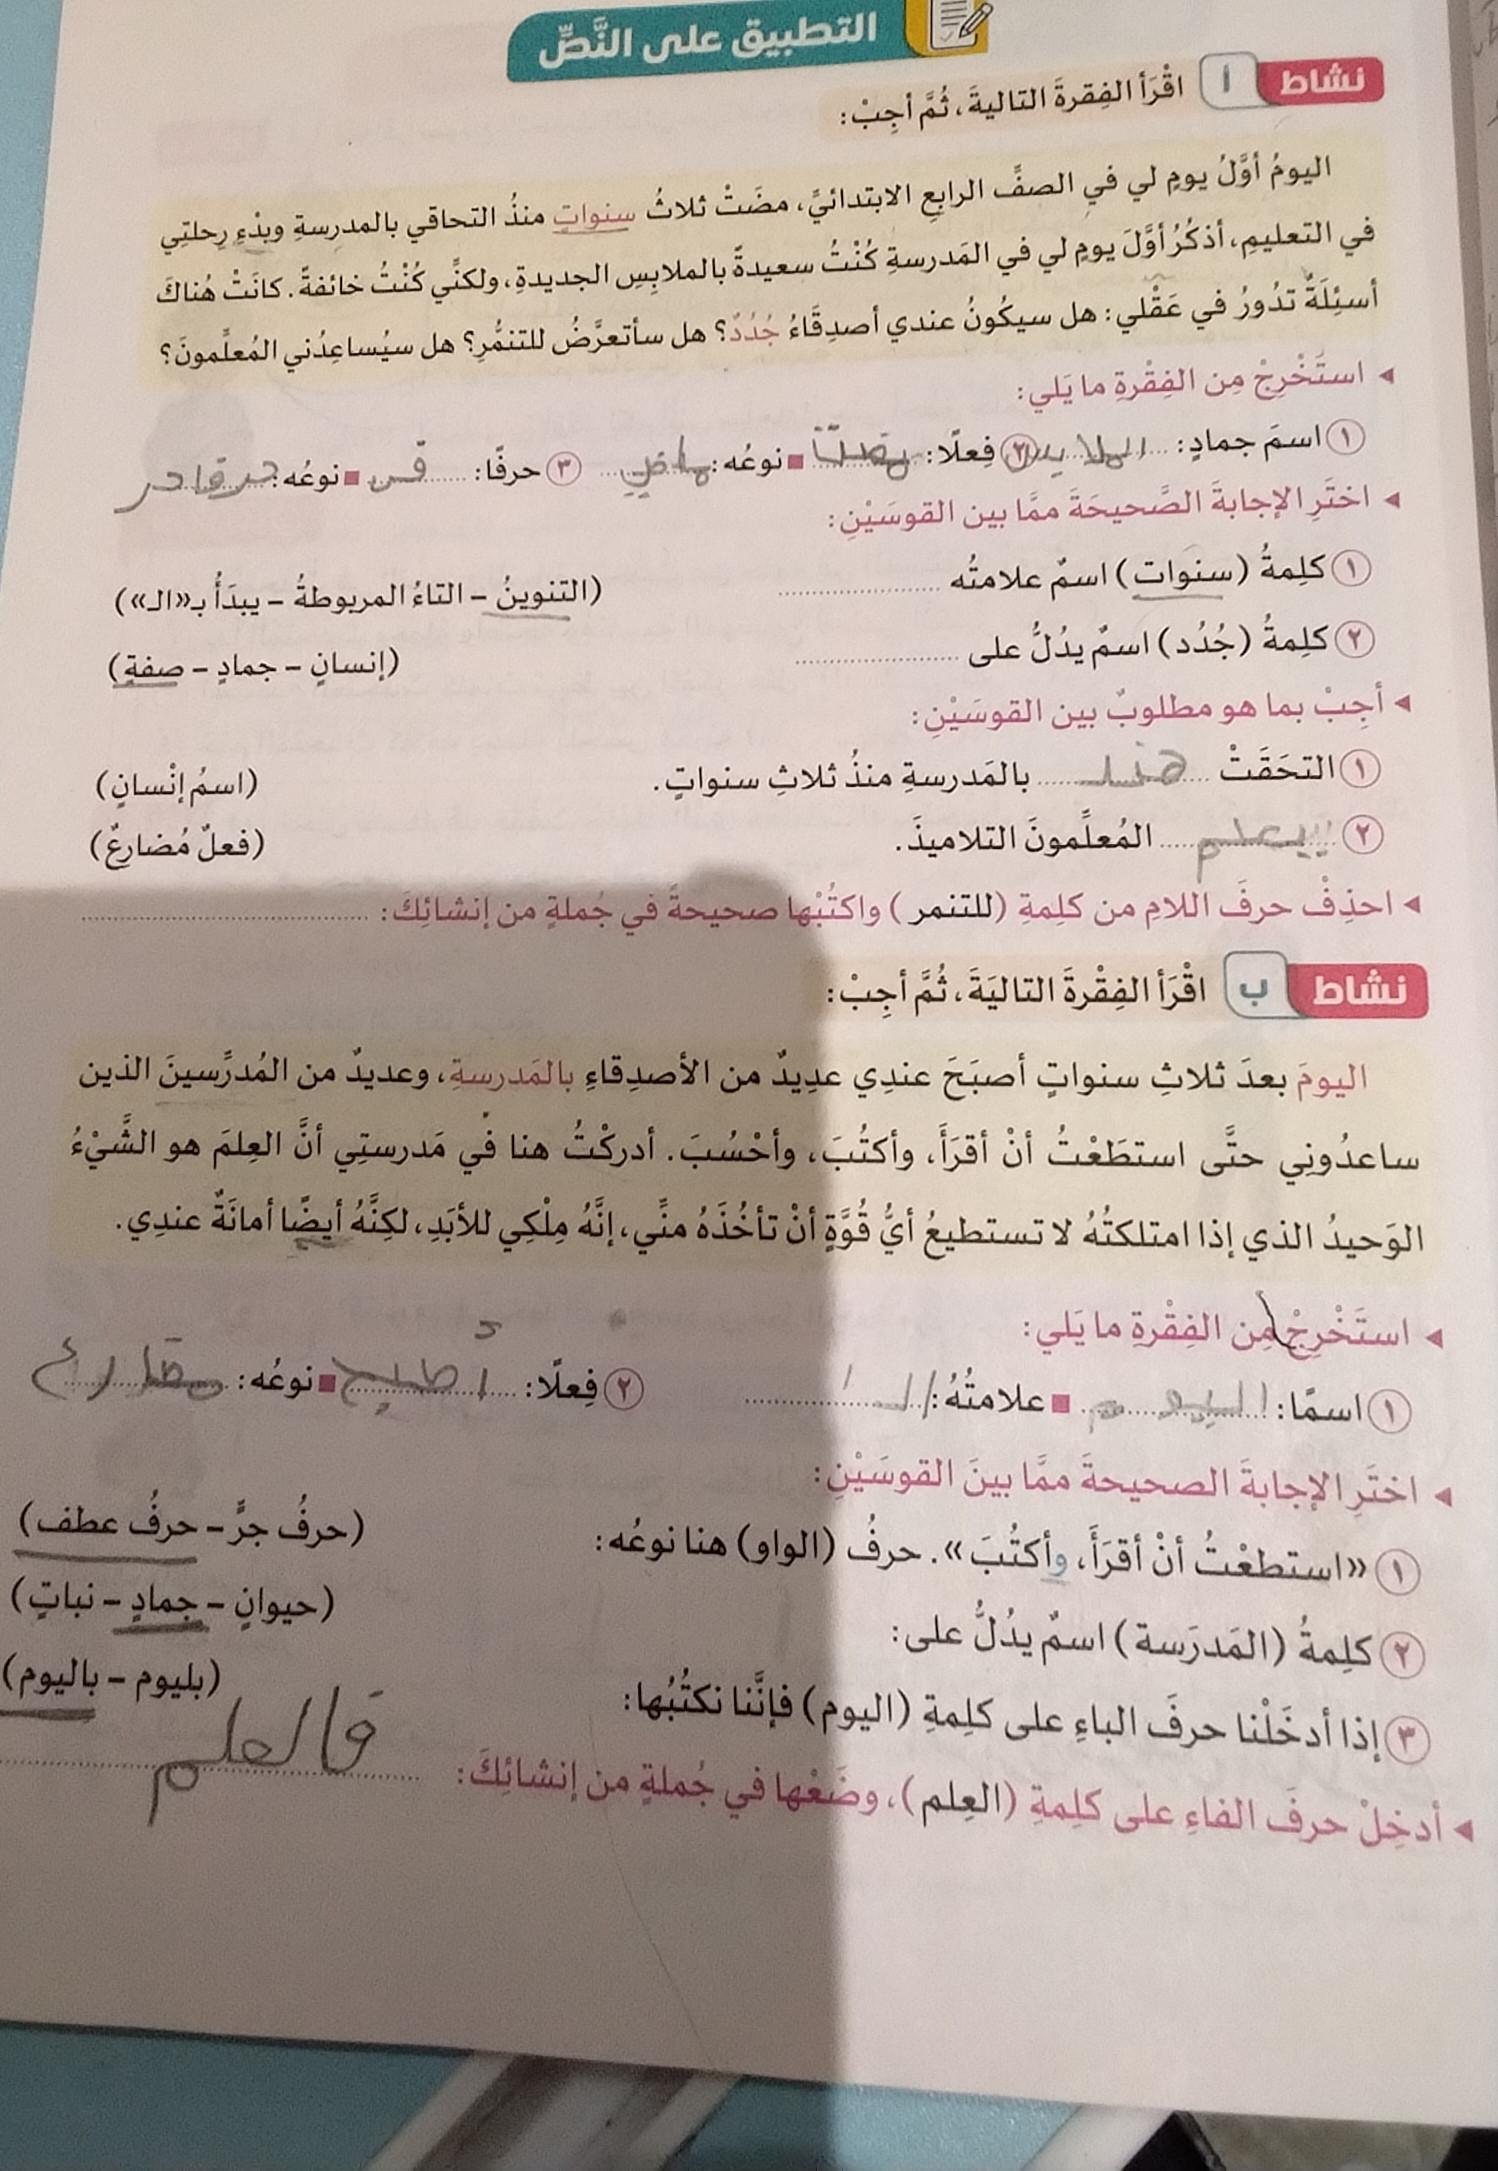 التطبيق على النَّصِّ
نشاط أ اقْرَأ الفِقرةَ التاليةَ، ثُمَّ أجِبْ:
اليومُ أوَّلُ يومٍ لي في الصفِّ الرابعِ الابتدائيِّ، مضَتْ ثلاثُ سنواتٍ منذُ التحاقي بالمدرسةِ وبدْءِ رِحلتِي
في التعليمِ، أذكُرُ أوَّلَ يومٍ لي في المَدرسةِ كُنْتُ سعيدةً بالملابِسِ الجديدةِ، ولكنِّي كُنْتُ خائفةً. كانَتْ هُناكَ
أسئِلَةٌ تدُورُ في عَقْلي: هل سيكُونُ عندي أصدِقَاءُ جُدُدٌ؟ هل سأتعرَّضُ للتنمُّرِ؟ هل سيُساعِدُني المُعلِّمونَ؟
◄ استَخْرِجْ مِن الفِقْرةِ ما يَلي:
١ اسمَ جمادٍ: الملابس ٢ فِعلًا: مضت ■ نوعُه: ماضي ٣ حرفًا: في ■ نوعُه: حرف جر
◄ اختَرِ الإجابةَ الصَّحيحَةَ ممَّا بين القوسَيْنِ:
١ كلِمةُ (سنوات) اسمٌ علامتُه ........ (التنوينُ – التاءُ المربوطةُ – يبدَأُ بـ«الـ»)
٢ كلِمةُ (جُدُد) اسمٌ يدُلُّ على ........ (إنسانٍ – جمادٍ – صفةٍ)
◄ أجِبْ بما هو مطلوبٌ بين القوسَيْنِ:
١ التحَقَتْ هند بالمَدرسةِ منذُ ثلاثِ سنواتٍ. (اسمُ إنْسانٍ)
٢ ييعلم المُعلِّمونَ التلاميذَ. (فعلٌ مُضارِعٌ)
◄ احذِفْ حرفَ اللامِ من كلِمةِ (للتنمر) واكتُبْها صحيحةً في جُملةٍ من إنشائِكَ: ........
نشاط ب اقْرَأ الفِقْرةَ التاليَةَ، ثُمَّ أجِبْ:
اليومَ بعدَ ثلاثِ سنواتٍ أصبَحَ عندِي عدِيدٌ من الأصدِقاءِ بالمَدرسةِ، وعديدٌ من المُدرِّسينَ الذين
ساعدُونِي حتَّى استطَعْتُ أنْ أقرَأَ، وأكتُبَ، وأحْسُبَ. أدركْتُ هنا في مَدرستِي أنَّ العِلمَ هو الشَّيْءُ
الوَحيدُ الذي إذا امتلكتُهُ لا تستطيعُ أيُّ قُوَّةٍ أنْ تأخُذَهُ منِّي، إنَّهُ مِلْكِي للأبَدِ، لكِنَّهُ أيضًا أمانَةٌ عندِي.
◄ استَخْرِجْ مِن الفِقْرةِ ما يَلي:
١ اسمًا: اليوم ■ علامتُهُ: الـ ٢ فِعلًا: أصبح ■ نوعُه: مضارع
◄ اختَرِ الإجابةَ الصحيحةَ ممَّا بينَ القوسَيْنِ:
١ «استطعْتُ أنْ أقرَأَ، وأكتُبَ». حرفُ (الواو) هنا نوعُه: (حرفُ جرٍّ – حرفُ عطف)
٢ كلِمةُ (المَدرَسة) اسمٌ يدُلُّ على: (حيوانٍ – جمادٍ – نباتٍ)
٣ إذا أدخَلْنا حرفَ الباءِ على كلِمةِ (اليوم) فإنَّنا نكتُبُها: (بليوم – باليوم)
◄ أدخِلْ حرفَ الفاءِ على كلِمةِ (العِلم)، وضَعْها في جُملةٍ من إنشائِكَ: فالعلم